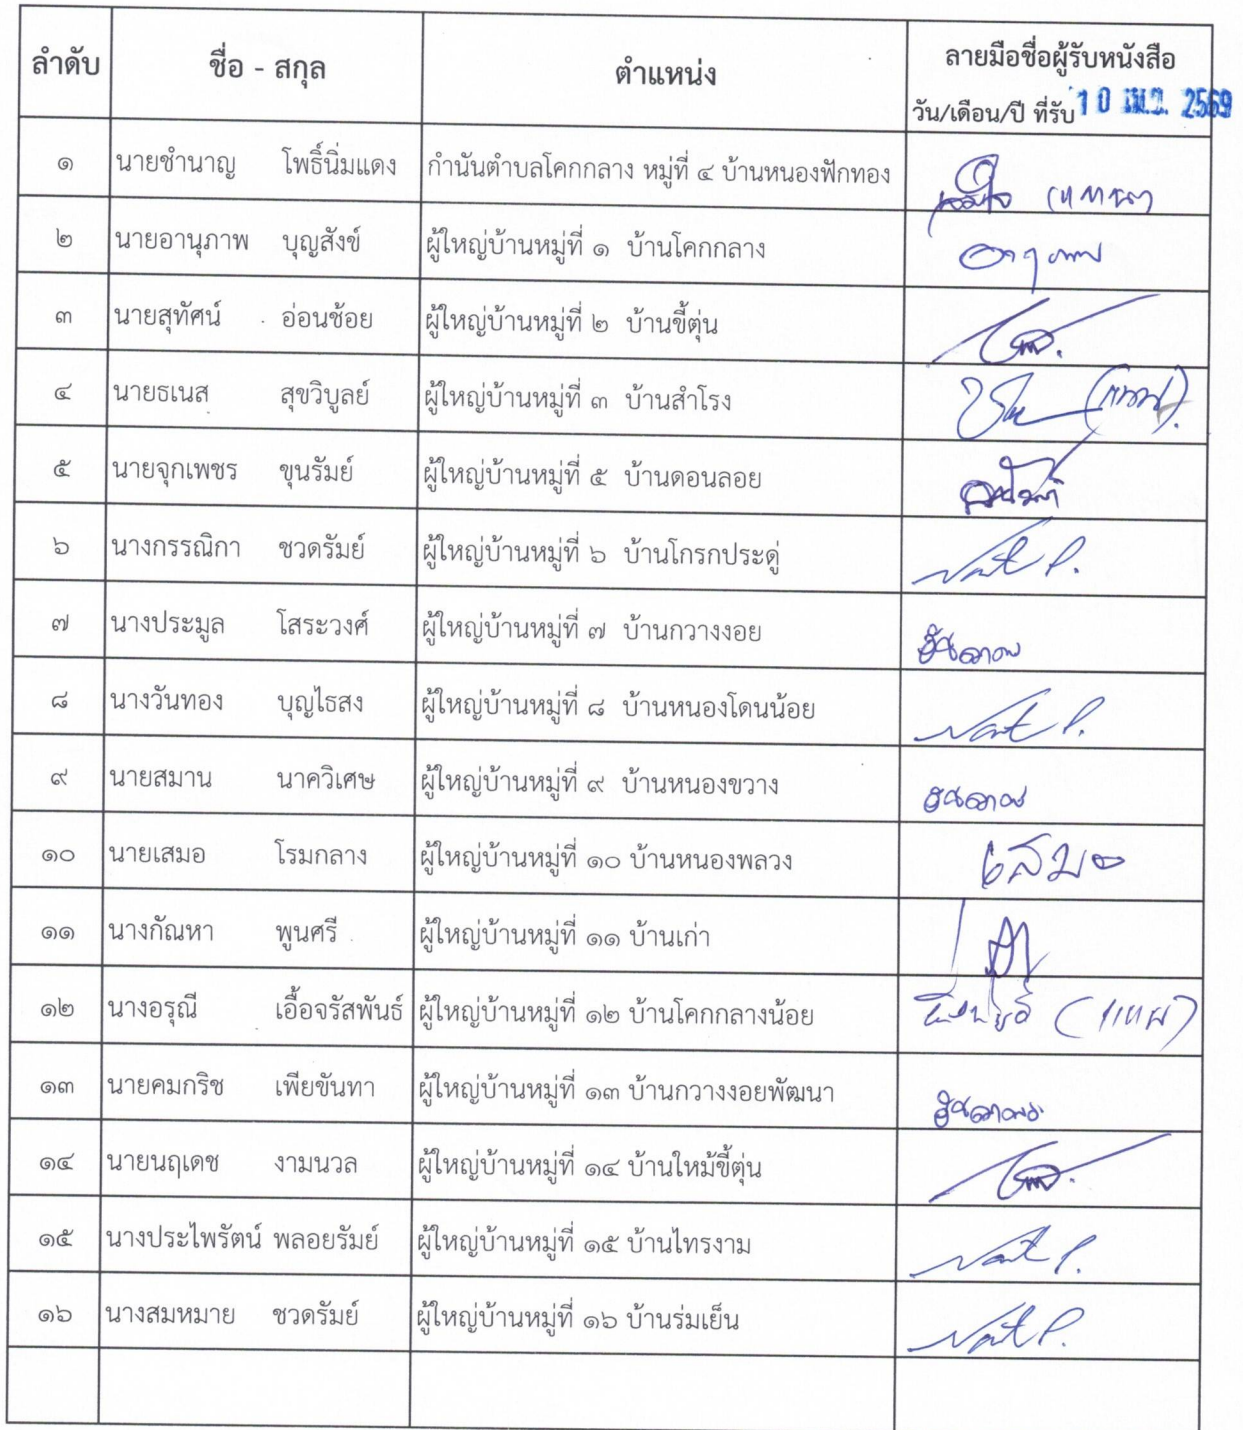 ลำดับ ชื่อ - สกุล ตำแหน่ง ลายมือชื่อผู้รับหนังสือ
วัน/เดือน/ปี ที่รับ 10 เม.ย. 2569
๑ นายชำนาญ โพธิ์นิ่มแดง กำนันตำบลโคกกลาง หมู่ที่ ๔ บ้านหนองฟักทอง
๒ นายอานุภาพ บุญสังข์ ผู้ใหญ่บ้านหมู่ที่ ๑ บ้านโคกกลาง อานุภาพ
๓ นายสุทัศน์ อ่อนช้อย ผู้ใหญ่บ้านหมู่ที่ ๒ บ้านขี้ตุ่น
๔ นายธเนส สุขวิบูลย์ ผู้ใหญ่บ้านหมู่ที่ ๓ บ้านสำโรง
๕ นายจุกเพชร ขุนรัมย์ ผู้ใหญ่บ้านหมู่ที่ ๕ บ้านดอนลอย
๖ นางกรรณิกา ชวดรัมย์ ผู้ใหญ่บ้านหมู่ที่ ๖ บ้านโกรกประดู่
๗ นางประมูล โสระวงศ์ ผู้ใหญ่บ้านหมู่ที่ ๗ บ้านกวางงอย
๘ นางวันทอง บุญไธสง ผู้ใหญ่บ้านหมู่ที่ ๘ บ้านหนองโดนน้อย
๙ นายสมาน นาควิเศษ ผู้ใหญ่บ้านหมู่ที่ ๙ บ้านหนองขวาง
๑๐ นายเสมอ โรมกลาง ผู้ใหญ่บ้านหมู่ที่ ๑๐ บ้านหนองพลวง เสมอ
๑๑ นางกัณหา พูนศรี ผู้ใหญ่บ้านหมู่ที่ ๑๑ บ้านเก่า
๑๒ นางอรุณี เอื้อจรัสพันธ์ ผู้ใหญ่บ้านหมู่ที่ ๑๒ บ้านโคกกลางน้อย (แทน)
๑๓ นายคมกริช เพียขันทา ผู้ใหญ่บ้านหมู่ที่ ๑๓ บ้านกวางงอยพัฒนา
๑๔ นายนฤเดช งามนวล ผู้ใหญ่บ้านหมู่ที่ ๑๔ บ้านใหม้ขี้ตุ่น
๑๕ นางประไพรัตน์ พลอยรัมย์ ผู้ใหญ่บ้านหมู่ที่ ๑๕ บ้านไทรงาม
๑๖ นางสมหมาย ชวดรัมย์ ผู้ใหญ่บ้านหมู่ที่ ๑๖ บ้านร่มเย็น